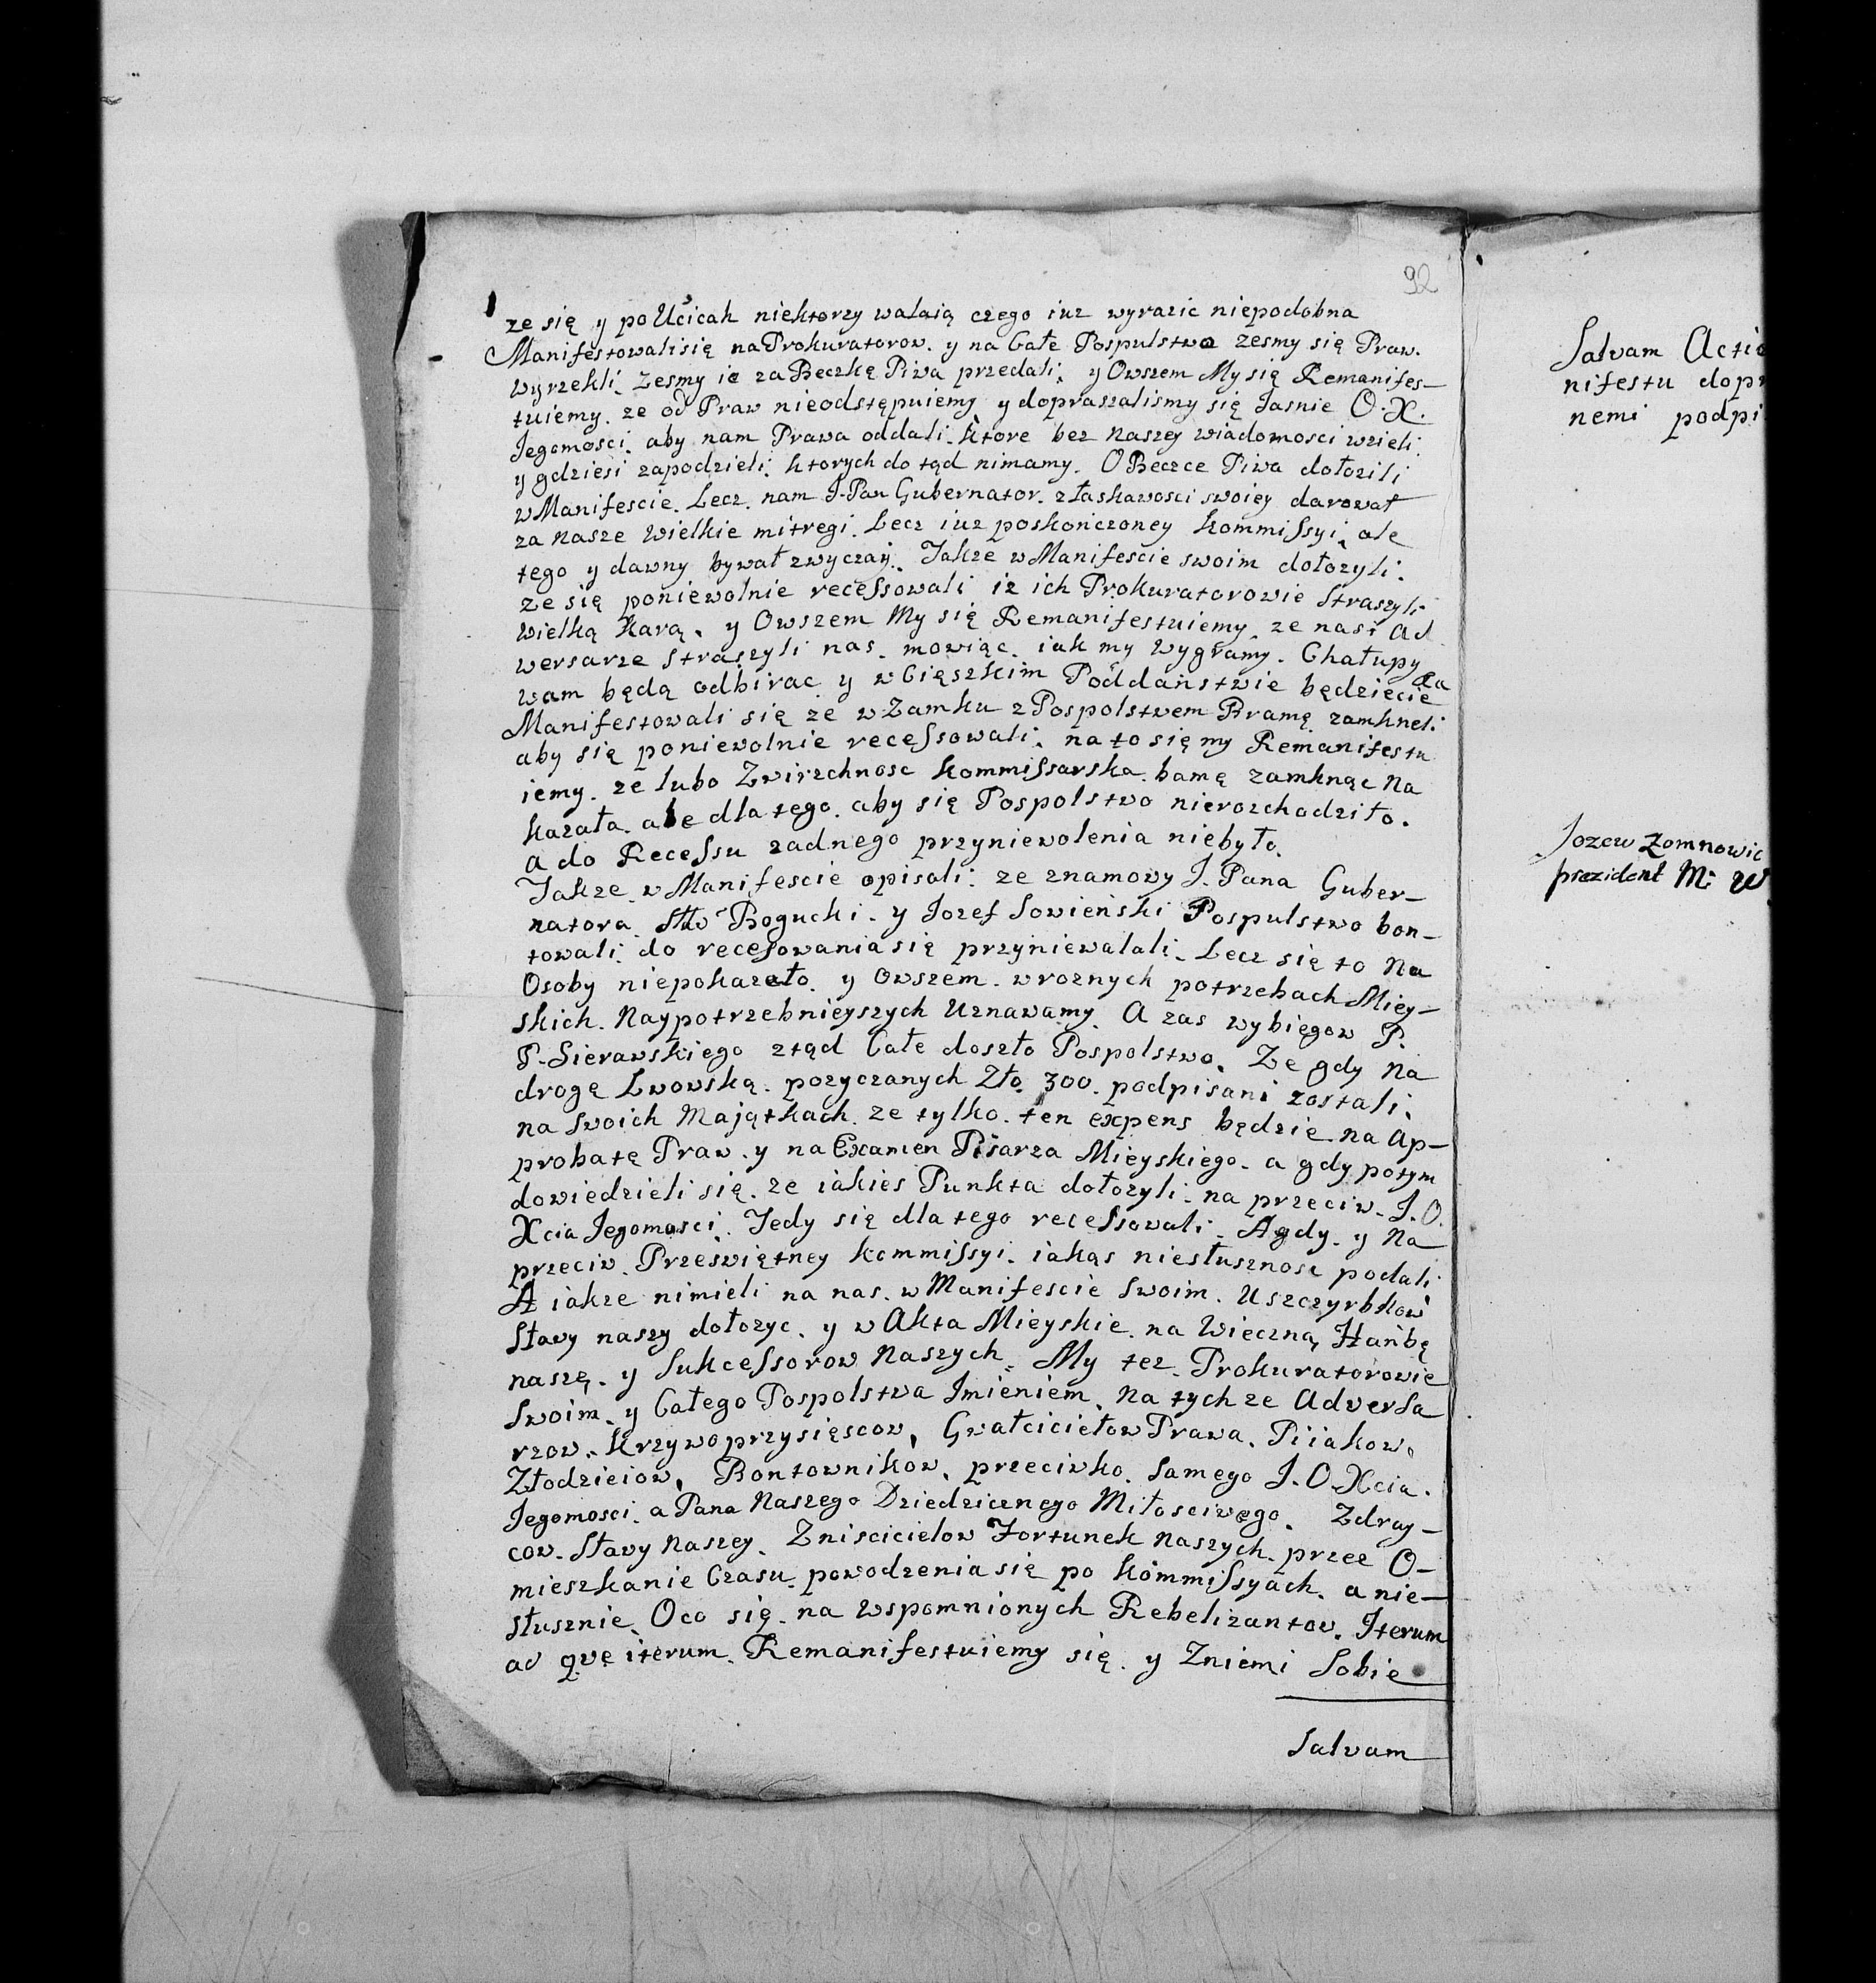 92
ze się y po Ucicah niektorzy walaią czego iuz wyrazic niępodobna
Manifestowali się na Prokuratorow. y na Całe Pospulstwo zesmy się Praw.
wyrzekli. zesmy ie za Beczkę Piwa przedali. y Owszem My się Remanifes–
tuiemy. ze od Praw nieodstępuiemy y dopraszalismy się Jasnie O. X.
Jegomosci. aby nam Prawa oddali. ktore bez naszey wiadomosci wzieli.
y gdziesi zapodzieli. ktorych do tąd nimamy. O Beczce Piwa dołozili
w Manifescie. Lecz. nam J. Pan Gubernator. z łaskawosci swoiey darował
za nasze wielkie mitręgi. Lecz iuz poskończoney kommissyi, ale
tego y dawny bywał zwyczaÿ. Jakze w Manifescie swoim dołozyli.
ze się poniewolnie recessowali iz ich Prokuratorowie straszyli
wielką karą. y Owszem My się Remanifestuiemy. ze nasi Ad
wersarze straszyli nas. mowiąc. iak my wygramy. Chałupy
wam będą odbirac y w Cięszkim Poddaństwie będziecie Za
Manifestowali się ze w Zamku z Pospolstwem Bramę zamkneli
aby się poniewolnie recessowali. na to się my Remanifestu
iemy. ze lubo Zwirzchnosc kommissarska. bamę zamknąc na
kazała. ale dla tego. aby się Pospolstwo nierozchodziło.
a do Recessu zadnego przyniewolenia niebyło.
Jakze w Manifescie opisali. ze znamowy J. Pana Guber–
natora. Stto Bogucki. y Jozef Sowieński Pospulstwo bon–
towali. do recesowania się przyniewalali. Lecz się to na
Osoby niepokazało. y owszem. w roznych potrzebach Miey–
skich. Naypotrzebnieyszych Uznawamy. A zas wybięgow P.
P. Sierawskiego ztąd Całe doszło Pospolstwo. Ze gdy na
drogę Lwowską. pozyczanych Zło. 300. podpisani zostali.
na swoich Mająthach. ze tylko. ten expens będzie na Ap–
probatę Praw. y na Examen Pisarza Mieyskiego. a gdy potym
dowiedzieli się. ze iakies Punkta dołozyli. na przeciw. J. O.
Xcia Jegomosci. Tedy się dla tego recessowali. A gdy. y na
przeciw. Przeswiętney kommissyi. iakąs niesłusznosc podali
A iakze nimieli na nas. w Manifescie swoim. Uszczyrbkow
sławy naszy dołozyc. y w Akta Mieyskie. na Wieczną Hańbę
naszę. y Sukcessorow naszych. My tez Prokuratorowie
swoim. y Całego Pospolstwa Jmieniem. na tych ze Adversa
rzow. krzywoprzysięscow, Gwałcicielow Prawa. Piiakow.
Złodzieiow, Bontownikow. przeciwko. samego J. O. Xcia.
Jegomosci. a Pana Naszego Dziedzicznego Miłosciwego. Zdray–
cow. Sławy naszey. Zniscicielow Fortunek naszych. przez O–
mieszkanie Czasu. powodzenia się po kommissyach. a nie–
słusznie. Oco się. na wspomnionych Rebelizantow. Iterum
ad qvę iterum. Remanifestuiemy się. y Zniemi Sobie
Salvam
Salvam Actio
nifestu dopr
nemi podpi
Jozew Zomnowic
prezident M: W